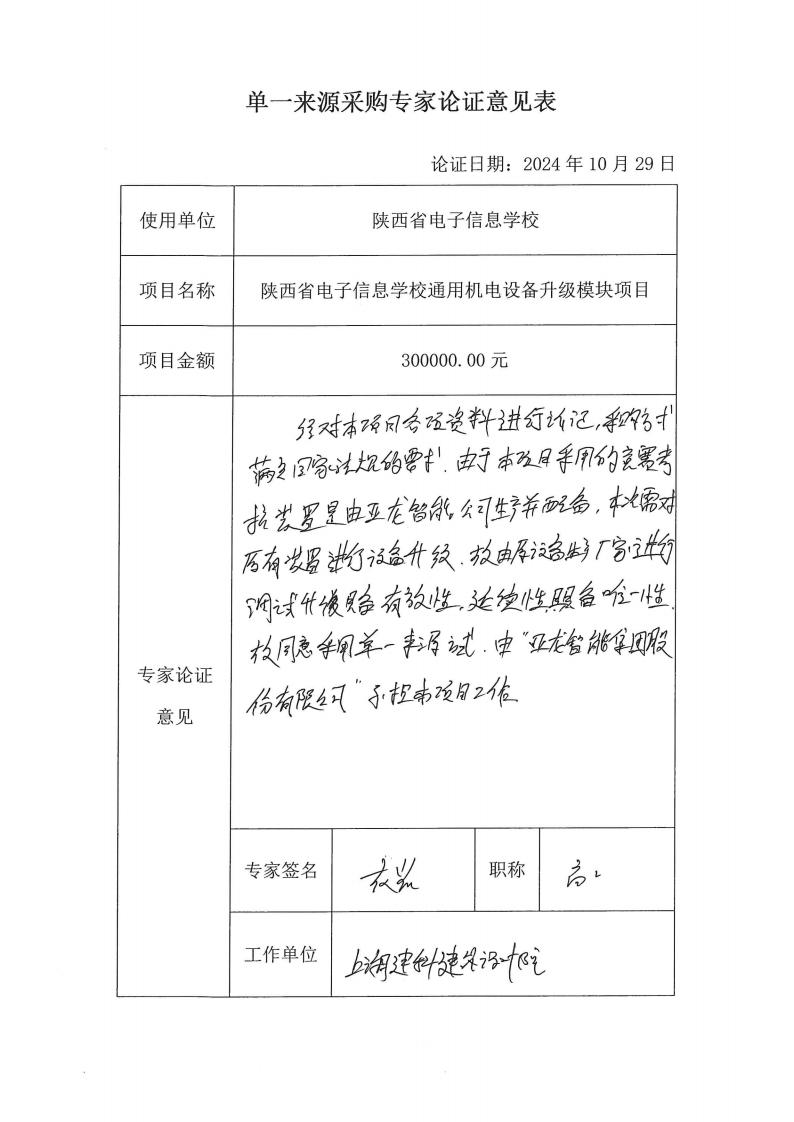 单一来源采购专家论证意见表
论证日期：2024 年 10 月 29 日
使用单位 陕西省电子信息学校
项目名称 陕西省电子信息学校通用机电设备升级模块项目
项目金额 300000.00 元
专家论证
意见
经对本项目各项资料进行论证,采购方式
满足国家法规的要求.由于本项目采用的竞赛考
核装置是由亚龙智能公司生产并配备,本次需对
原有装置进行设备升级.故由原设备生产厂家进行
调试升级 有效性,延续性 唯一性.
故同意采用单一来源 式.由“亚龙智能集团股
份有限公司”承担本项目工作
专家签名 职称 高工
工作单位 上海建科建筑设计院